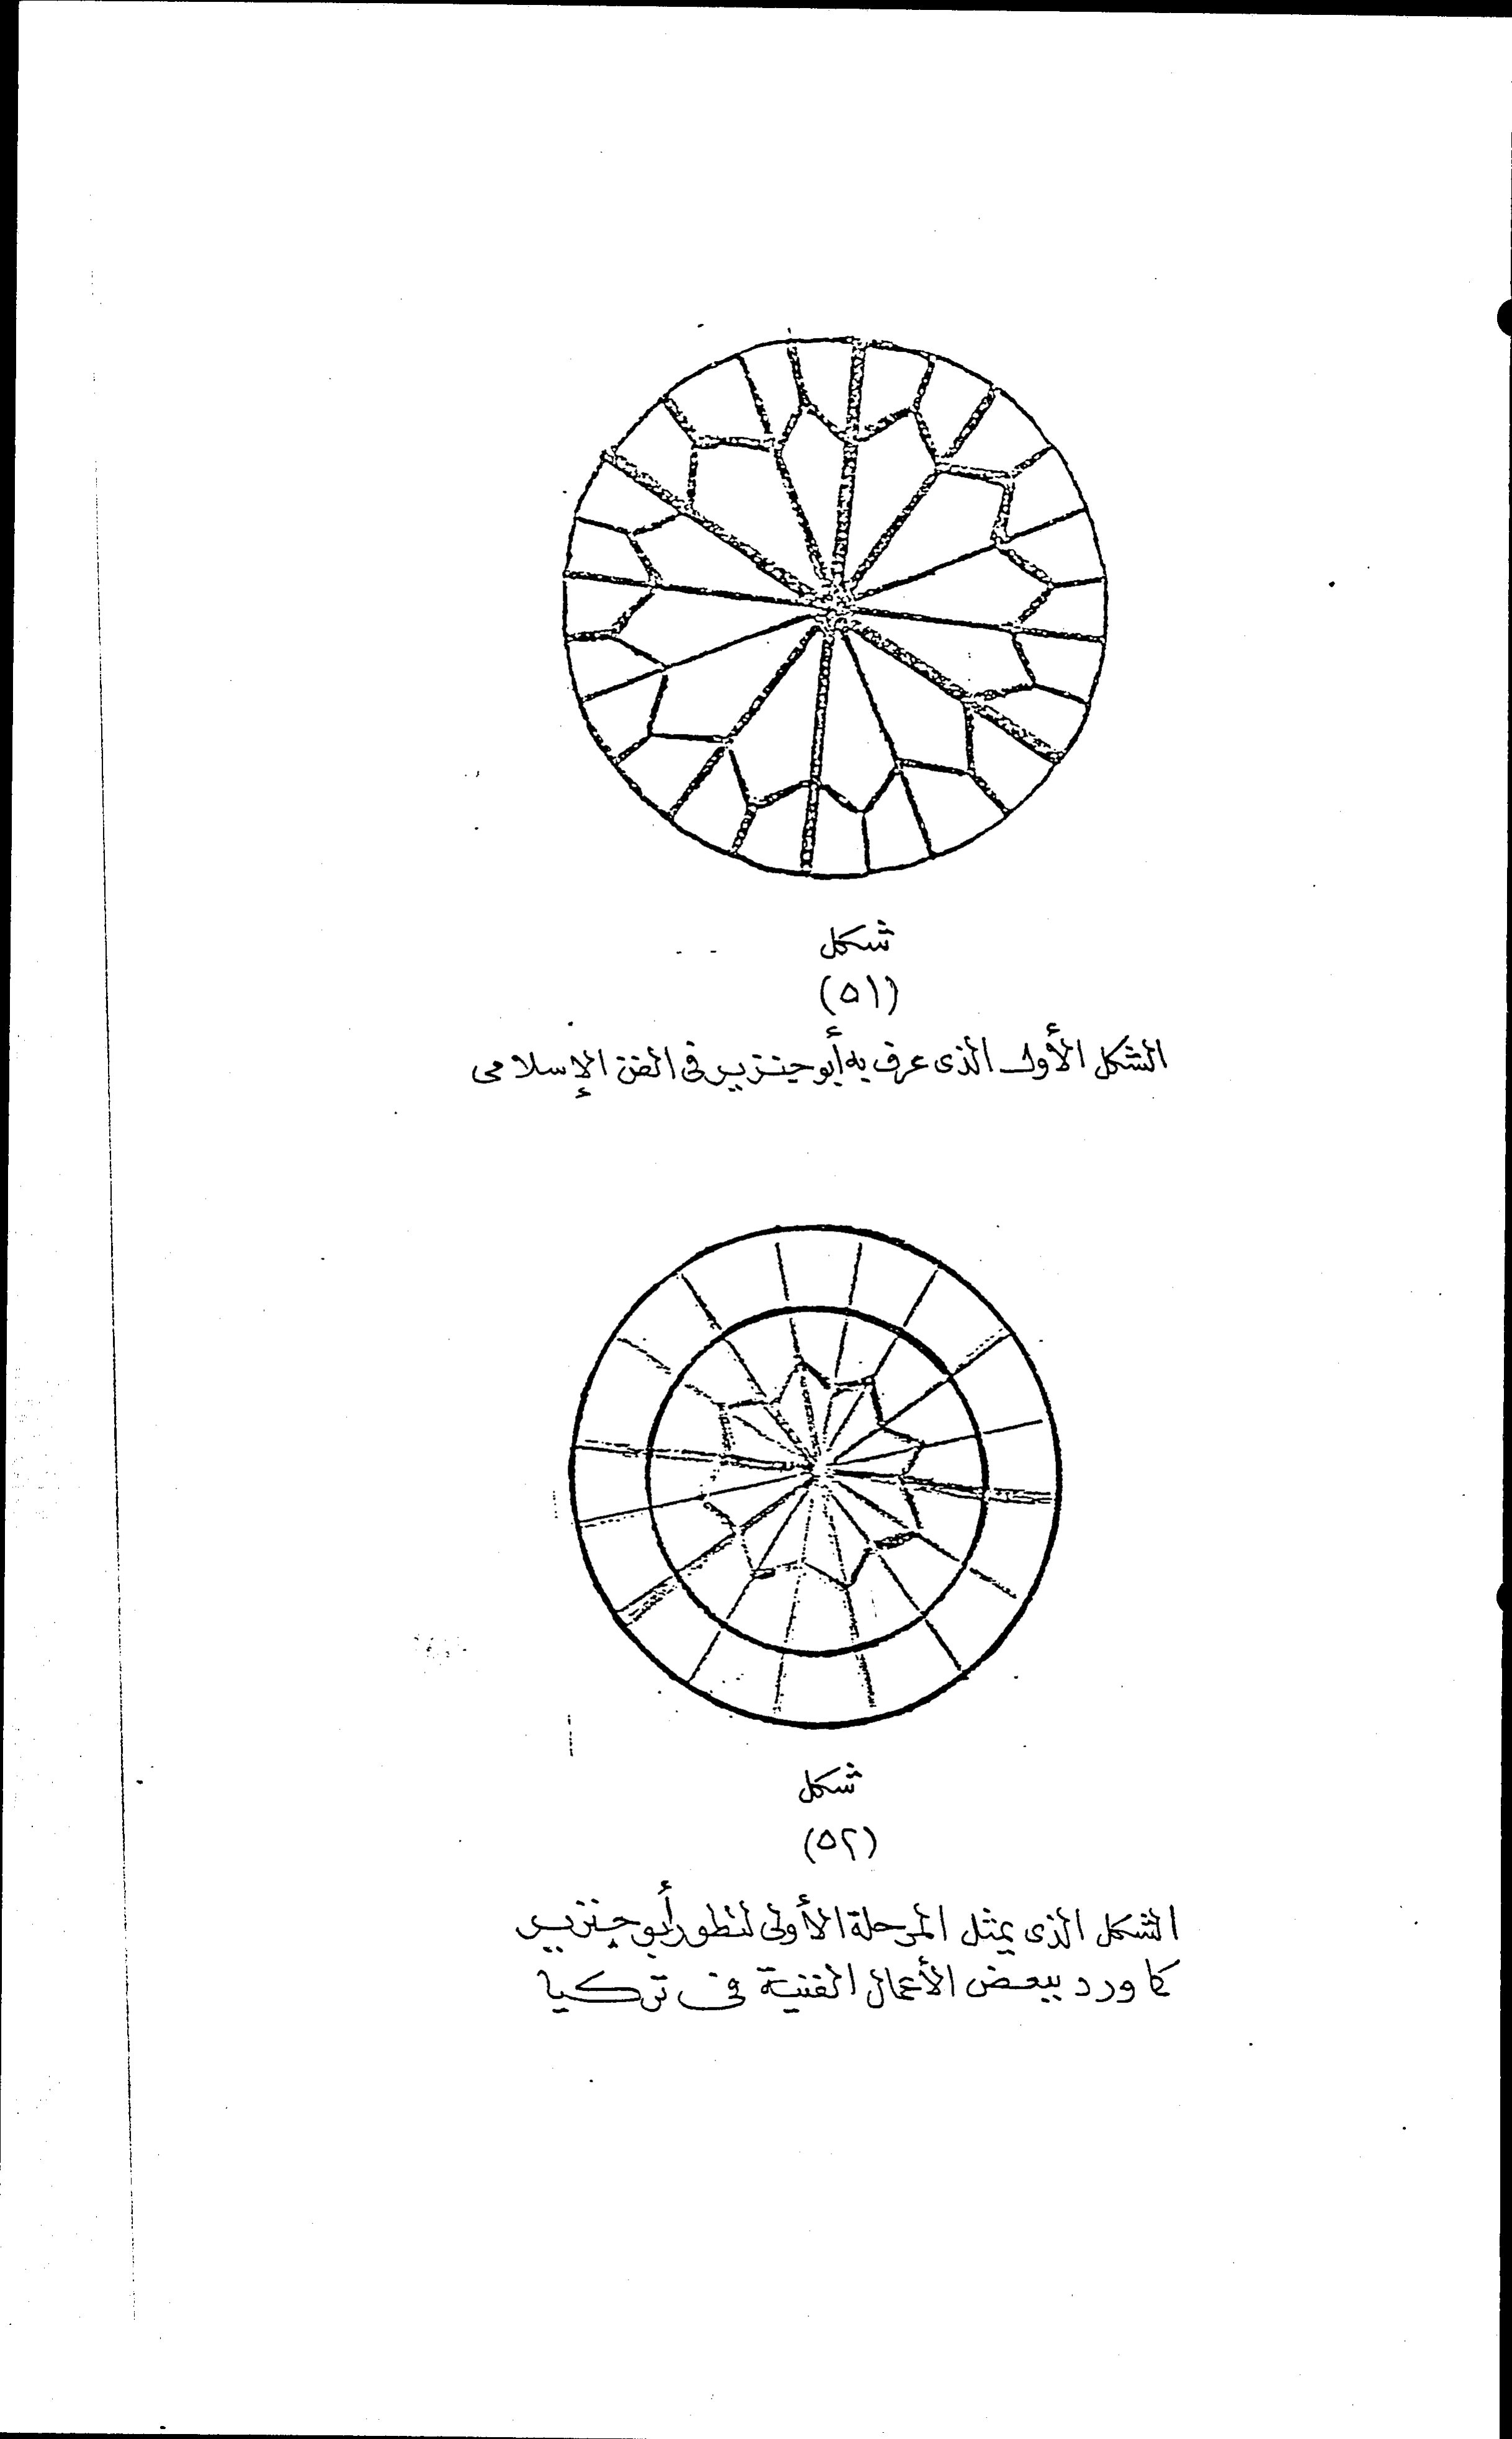 شكل
(٥١)
الشكل الأول الذى عرف به أبو جنزير فى الفن الإسلامى
شكل
(٥٢)
الشكل الذى يمثل المرحلة الأولى لتطور أبو جنزير
كما ورد ببعض الأعمال الفنية فى تركيا